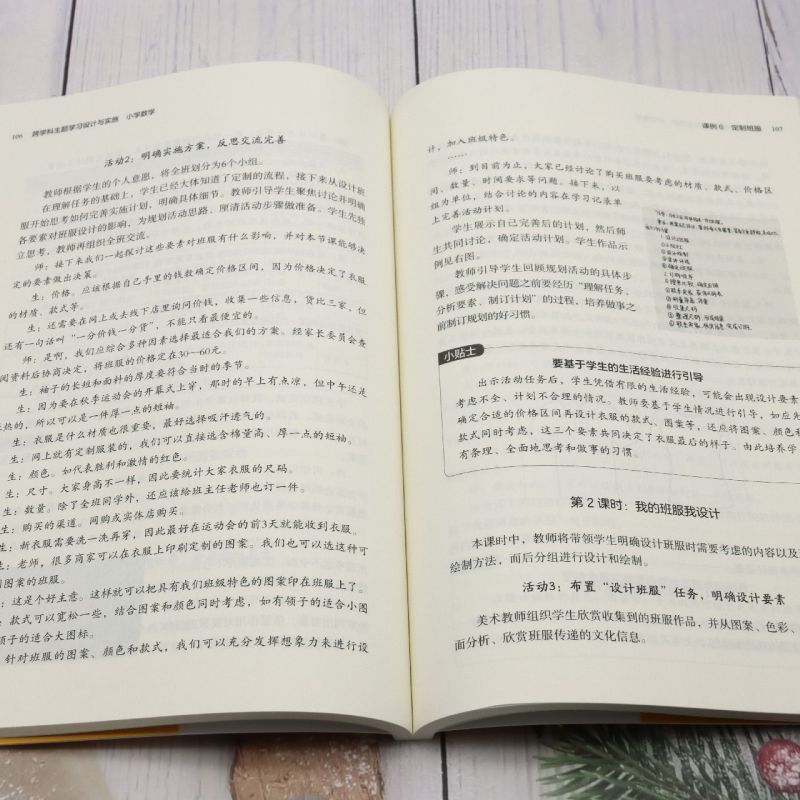 106 跨学科主题学习设计与实施 小学数学
活动2：明确实施方案，反思交流完善
教师根据学生的个人意愿，将全班划分为6个小组。
在理解任务的基础上，学生已经大体知道了定制的流程，接下来从设计班
服开始思考如何完善实施计划，明确具体细节。教师引导学生聚焦讨论并明确
各要素对班服设计的影响，为规划活动思路、厘清活动步骤做准备。学生先独
立思考，教师再组织全班交流。
师：接下来我们一起探讨这些要素对班服有什么影响，并对本节课能够决
定的要素做出决策。
生：价格。应该根据自己手里的钱数确定价格区间，因为价格决定了衣服
的材质、款式等。
生：还需要在网上或去线下店里询问价钱，收集一些信息，货比三家，但
还有一句话叫“一分价钱一分货”，不能只看最便宜的。
师：是啊，我们应综合多种因素选择最适合我们的方案。经家长委员会查
阅资料后协商决定，将班服的价格定在30—60元。
生：袖子的长短和面料的厚度要符合当时的季节。
生：因为要在秋季运动会的开幕式上穿，那时的早上有点凉，但中午还是
热的，所以可以是一件厚一点的短袖。
生：衣服是什么材质也很重要，最好选择吸汗透气的。
生：网上就有定制服装的，我们可以直接选含棉量高、厚一点的短袖。
生：颜色。如代表胜利和激情的红色。
生：尺寸。大家身高不一样，因此要统计大家衣服的尺码。
生：数量。除了全班同学外，还应该给班主任老师也订一件。
生：购买的渠道。网购或实体店购买。
生：新衣服需要洗一洗再穿，因此最好在运动会的前3天就能收到衣服。
生：老师，很多商家可以在衣服上印刷定制的图案。我们也可以选这种可
图案的班服。
：这是个好主意。这样就可以把具有我们班级特色的图案印在班服上了。
：款式可以宽松一些，结合图案和颜色同时考虑，如有领子的适合小图
领子的适合大图标。
针对班服的图案、颜色和款式，我们可以充分发挥想象力来进行设
课例6 定制班服 107
计，加入班级特色。
……
师：到目前为止，大家已经讨论了购买班服要考虑的材质、款式、价格区
间、数量、时间要求等问题。接下来，以
组为单位，结合讨论的内容在学习记录单
上完善活动计划。
学生展示自己完善后的计划，然后师
生共同讨论，确定活动计划。学生作品示
例见右图。
教师引导学生回顾规划活动的具体步
骤，感受解决问题之前要经历“理解任务、
分析要素、制订计划”的过程，培养做事之
前制订规划的好习惯。
小贴士
要基于学生的生活经验进行引导
出示活动任务后，学生凭借有限的生活经验，可能会出现设计要素
考虑不全、计划不合理的情况。教师要基于学生情况进行引导，如应先
确定合适的价格区间再设计衣服的款式、图案等，还应将图案、颜色和
款式同时考虑，这三个要素共同决定了衣服最后的样子。由此培养学
有条理、全面地思考和做事的习惯。
第2课时：我的班服我设计
本课时中，教师将带领学生明确设计班服时需要考虑的内容以及
绘制方法，而后分组进行设计和绘制。
活动3：布置“设计班服”任务，明确设计要素
美术教师组织学生欣赏收集到的班服作品，并从图案、色彩、
面分析、欣赏班服传递的文化信息。